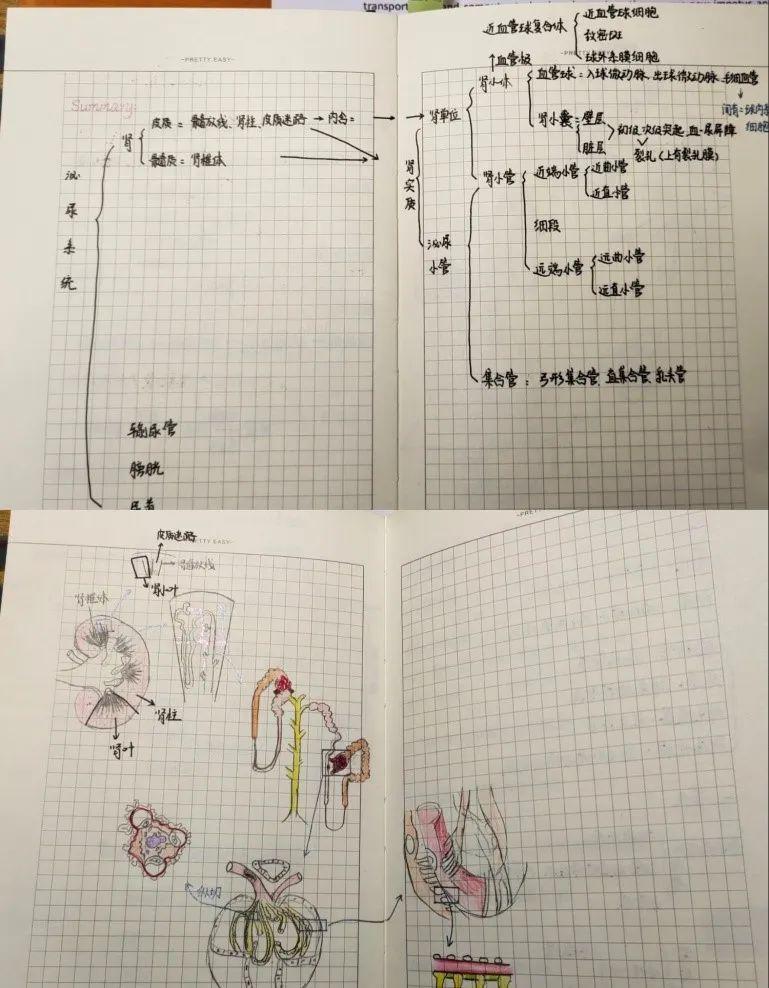 transport
-PRETTY EASY-
Summary:
泌尿系统
肾
皮质 = 髓放线、肾柱、皮质迷路 → 内含=
髓质 = 肾椎体
输尿管
膀胱
近血管球复合体
近血管球细胞
致密斑
球外系膜细胞
↑血管极
-PRETTY EASY-
肾实质
肾单位
肾小体
血管球 = 入球微动脉、出球微动脉、毛细血管
肾小囊 = 壁层
脏层
初级、次级突起、血-尿屏障
裂孔(上有裂孔膜)
细胞
泌尿
小管
肾小管
近端小管
近曲小管
近直小管
细段
远端小管
远曲小管
远直小管
集合管 : 弓形集合管、直集合管、乳头管
皮质迷路
肾小叶
肾椎体
肾柱
肾叶